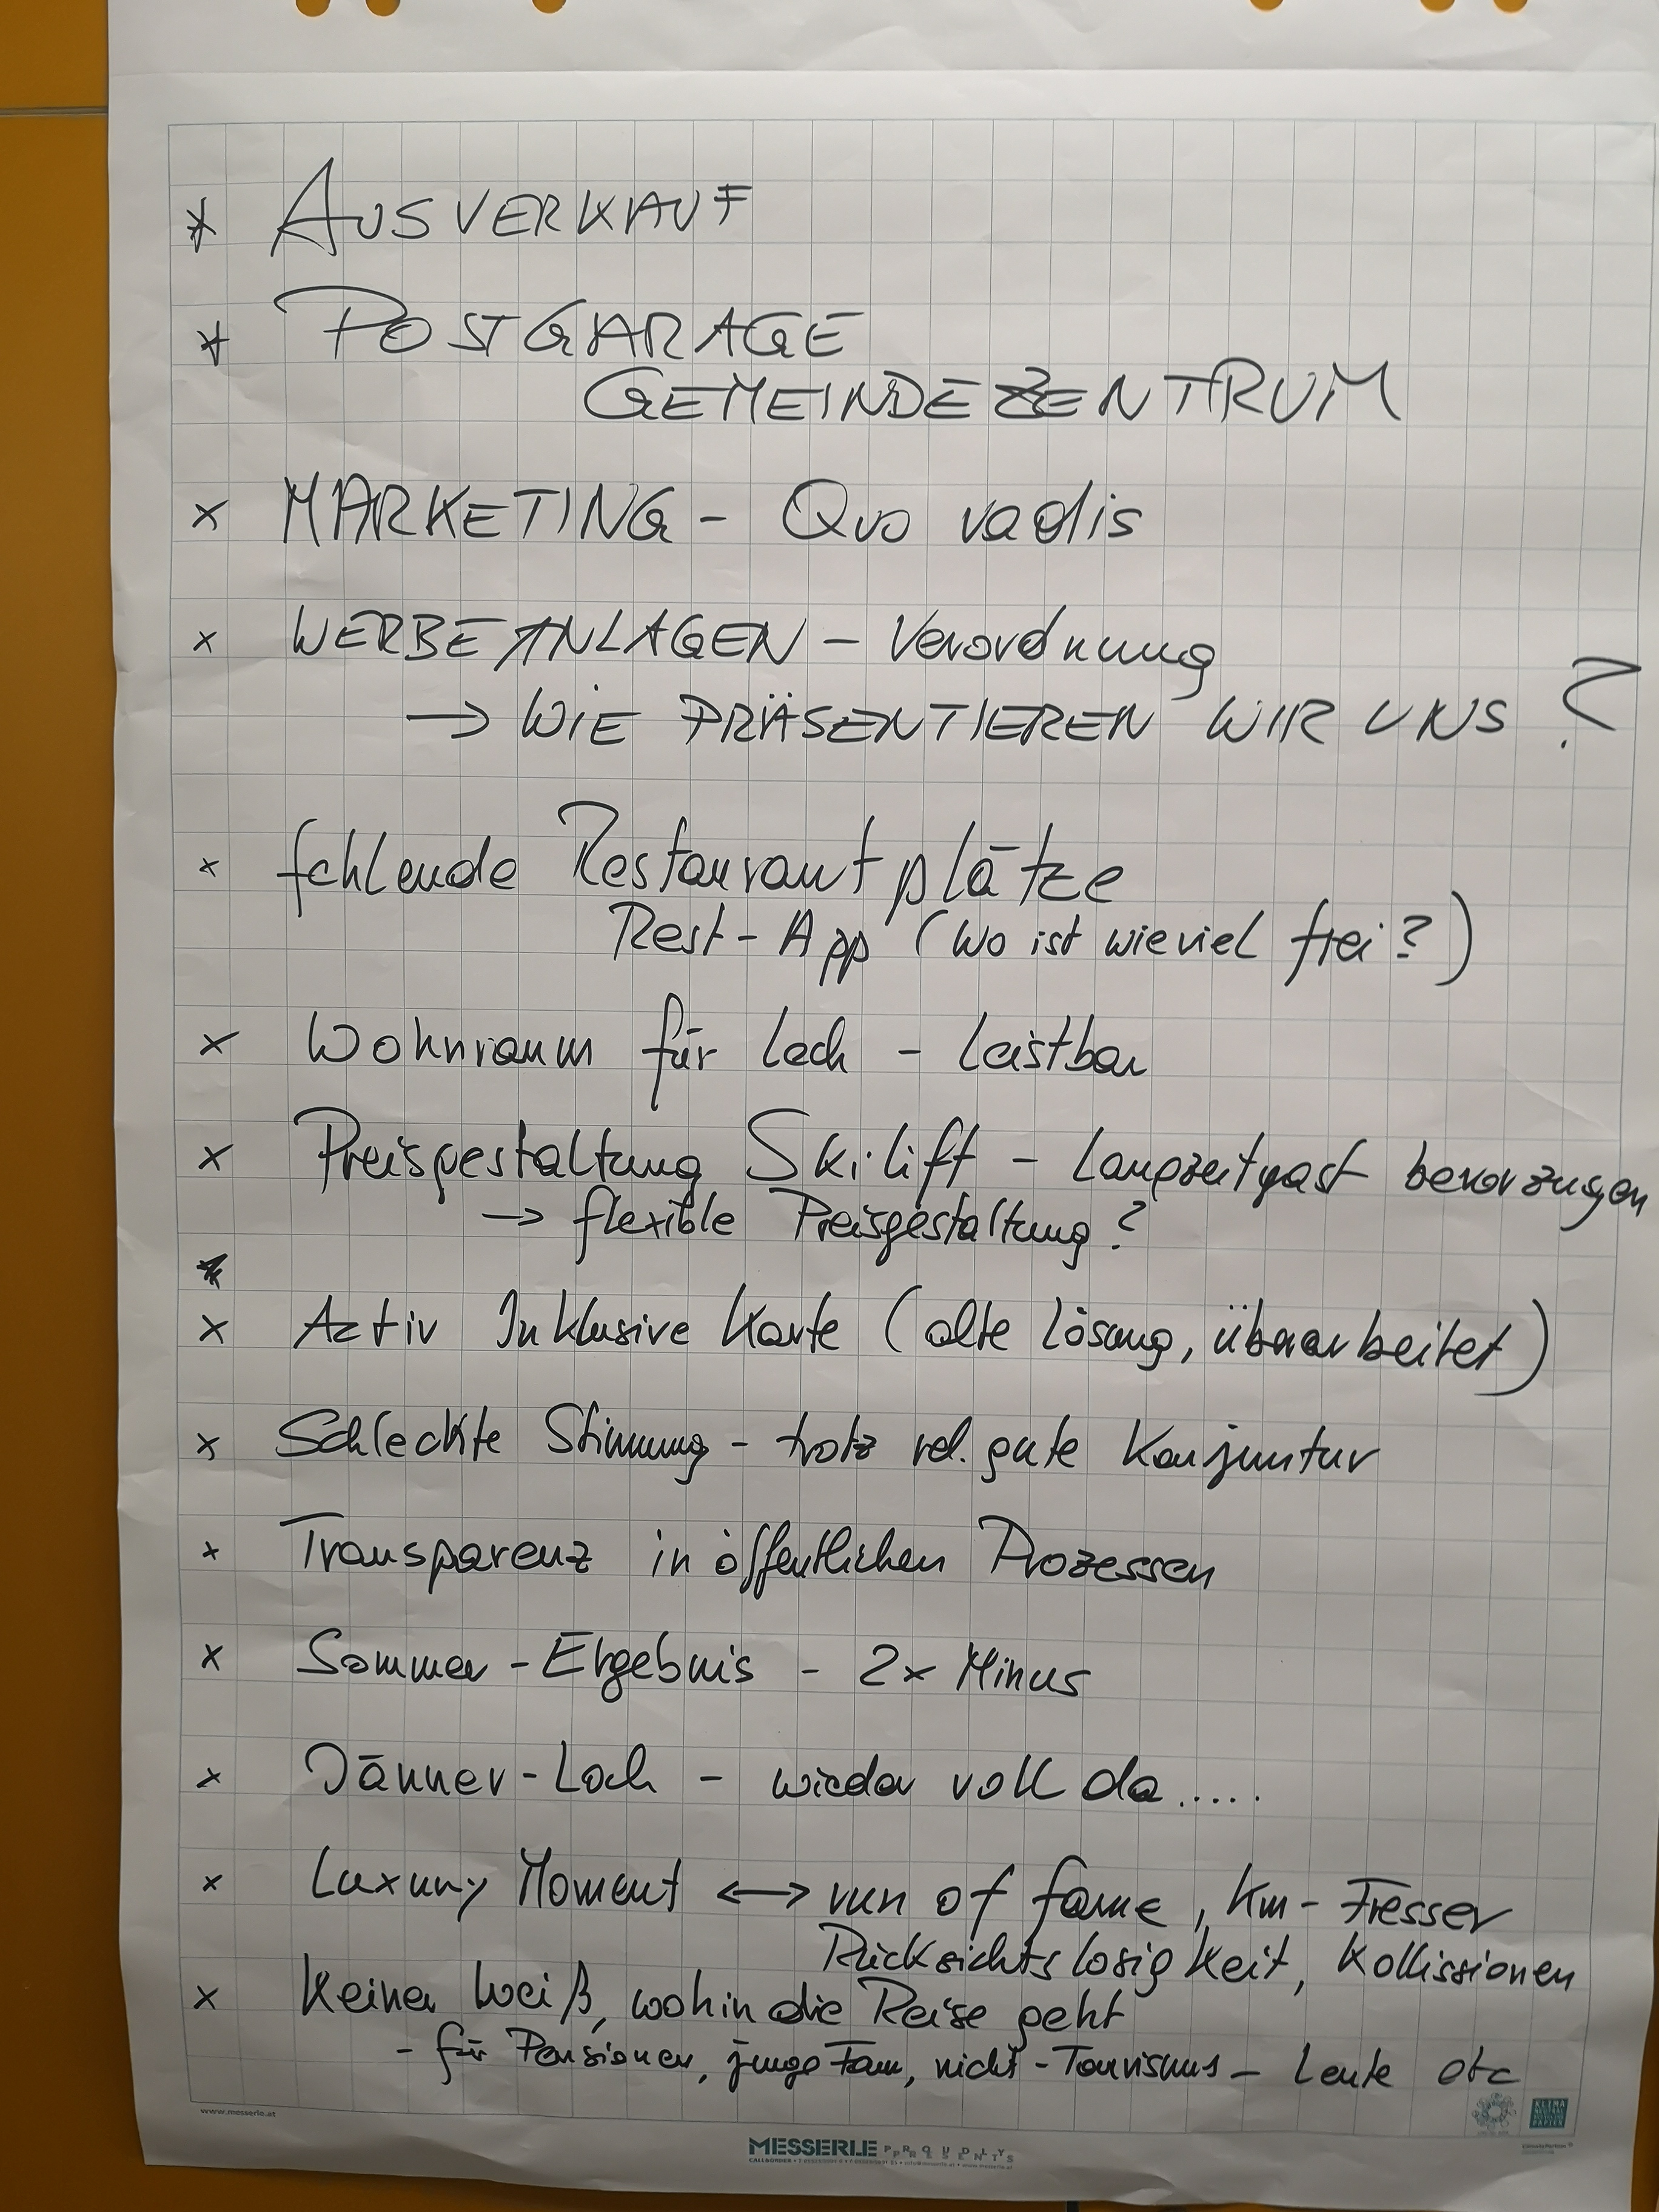 * AUSVERKAUF
* POSTGARAGE
GEMEINDEZENTRUM
x MARKETING - Quo vadis
x WERBEANLAGEN - Verordnung
→ WIE PRÄSENTIEREN WIR UNS ?
x fehlende Restaurantplätze
Rest-App (Wo ist wieviel frei?)
x Wohnraum für Lech - leistbar
x Preisgestaltung Skilift - Langzeitgast bevorzugen
→ flexible Preisgestaltung?
x Activ Inklusive Karte (alte Lösung, überarbeitet)
x Schlechte Stimmung - trotz rel. gute Konjunktur
x Transparenz in öffentlichen Prozessen
x Sommer-Ergebnis - 2x Minus
x Jänner-Loch - wieder voll da.....
x Luxury Moment ↔ run of fame, Km-Fresser
Rücksichtslosigkeit, Kollissionen
x Keiner weiß, wohin die Reise geht
- für Pensioner, junge Fam, nicht-Tourismus-Leute etc
www.messerle.at
MESSERLE PROUDLY PRESENTS